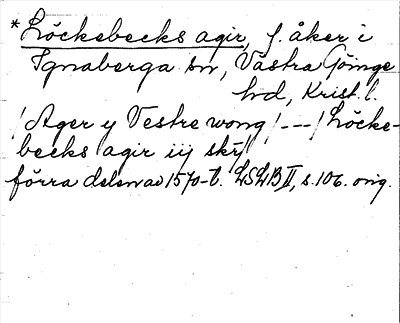 *Löckebecks agir, f. åker i
Ignaberga sn, Västra Göinge
hd, Krist. l.
/Ager y Vestre wong/---/Löcke-
becks agir iij skr/
förra delen av 1570-t. LSLB II, s. 106. orig.